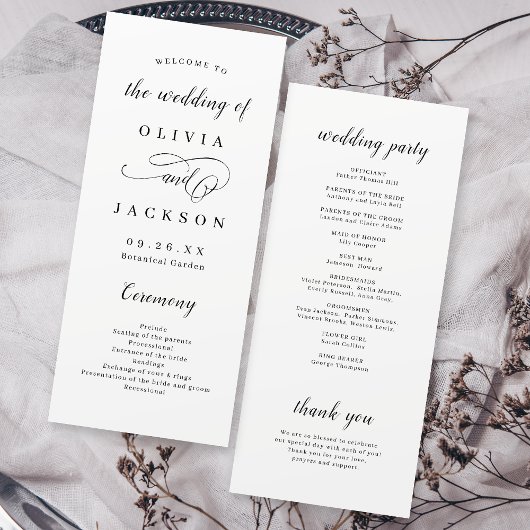 WELCOME TO
the wedding of
OLIVIA
and
JACKSON
09.26.XX
Botanical Garden
Ceremony
Prelude
Seating of the parents
Processional
Entrance of the bride
Readings
Exchange of vows & rings
Presentation of the bride and groom
Recessional
wedding party
OFFICIANT
Father Thomas Hill
PARENTS OF THE BRIDE
Anthony and Layla Bell
PARENTS OF THE GROOM
Landon and Claire Adams
MAID OF HONOR
Lily Cooper
BEST MAN
Jameson Howard
BRIDESMAIDS
Violet Peterson, Stella Martin,
Everly Russell, Anna Gray,
GROOMSMEN
Evan Jackson, Parker Simmons,
Vincent Brooks, Weston Lewis,
FLOWER GIRL
Sarah Collins
RING BEARER
George Thompson
thank you
We are so blessed to celebrate
our special day with each of you!
Thank you for your love,
prayers and support.